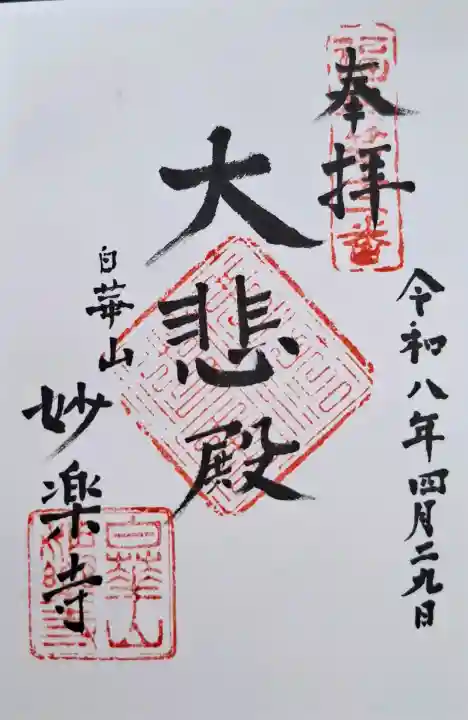 奉拝
令和八年四月二九日
大悲殿
白華山
妙楽寺
白華山